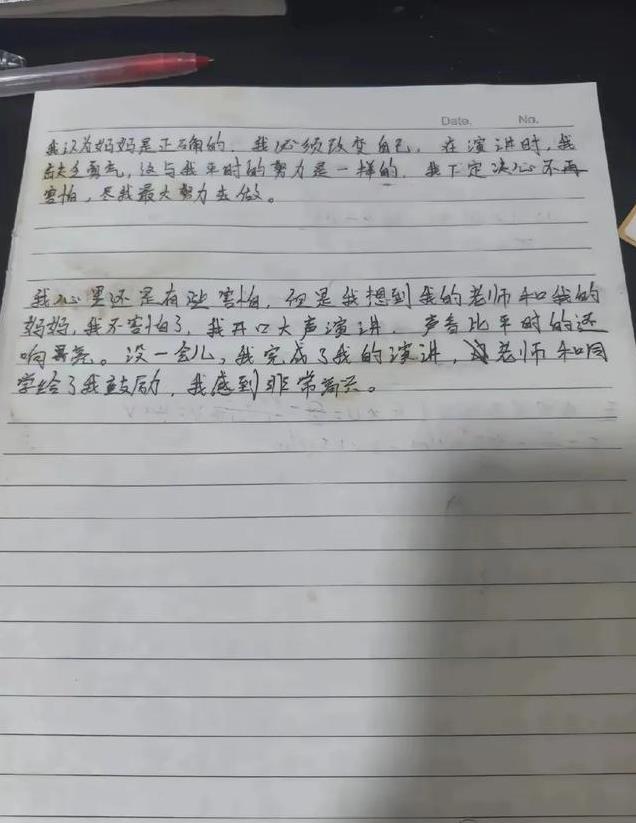 Date. No.
我认为妈妈是正确的，我必须改变自己，在演讲时，我
缺乏勇气，这与我平时的努力是一样的，我下定决心不再
害怕，尽我最大努力去做。
我心里还是有些害怕，但是我想到我的老师和我的
妈妈，我不害怕了，我开口大声演讲，声音比平时的还
响。没一会儿，我完成了我的演讲，老师和同
学给了我鼓励，我感到非常高兴。